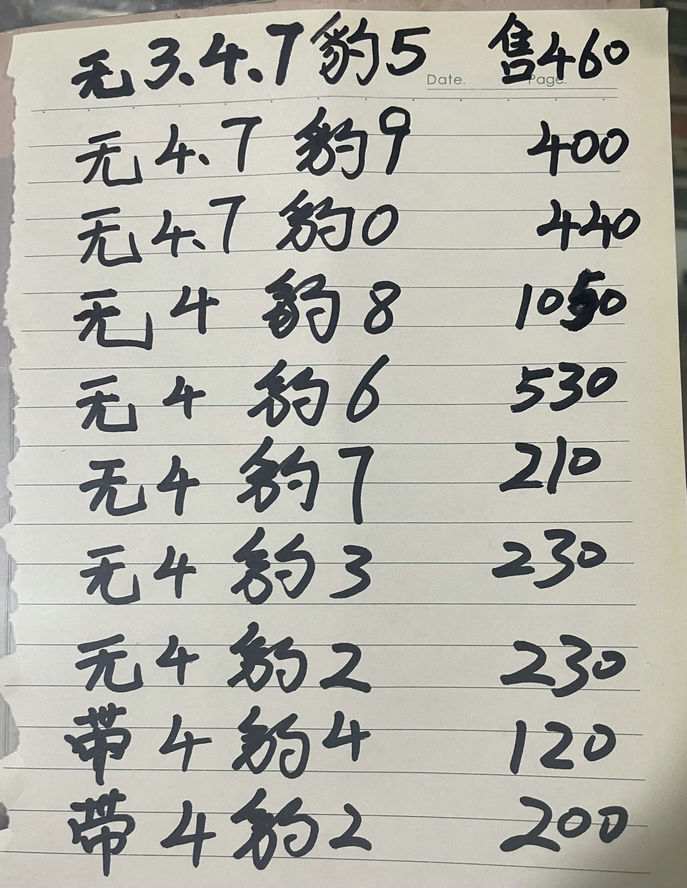 无3.4.7豹5 售460
Date. Page.
无4.7 豹9 400
无4.7 豹0 440
无4 豹8 1050
无4 豹6 530
无4 豹7 210
无4 豹3 230
无4 豹2 230
带4豹4 120
带4豹2 200